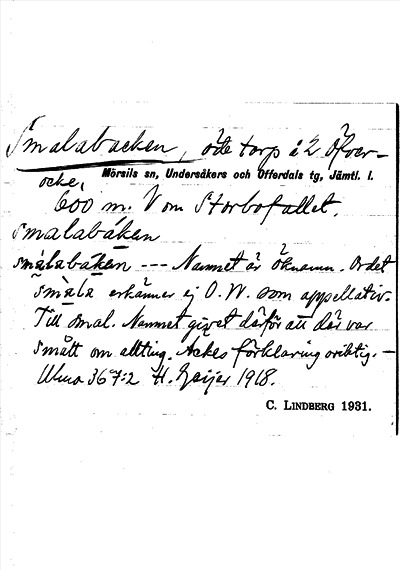 Smalabacken, öde torp å 2 Öfver-
ocke,
Mörsils sn, Undersåkers och Offerdals tg, Jämtl. l.
600 m. V om Storbofallet.
smalabáken
smàlabáken --- Namnet är öknamn. Ordet
smàla erkänner ej O. W. som appellativ.
Till smal. Namnet givet därför att där var
smått om allting. Ackes förklaring oriktig. –
Ulma 367:2 H. Geijer 1918.
C. LINDBERG 1931.